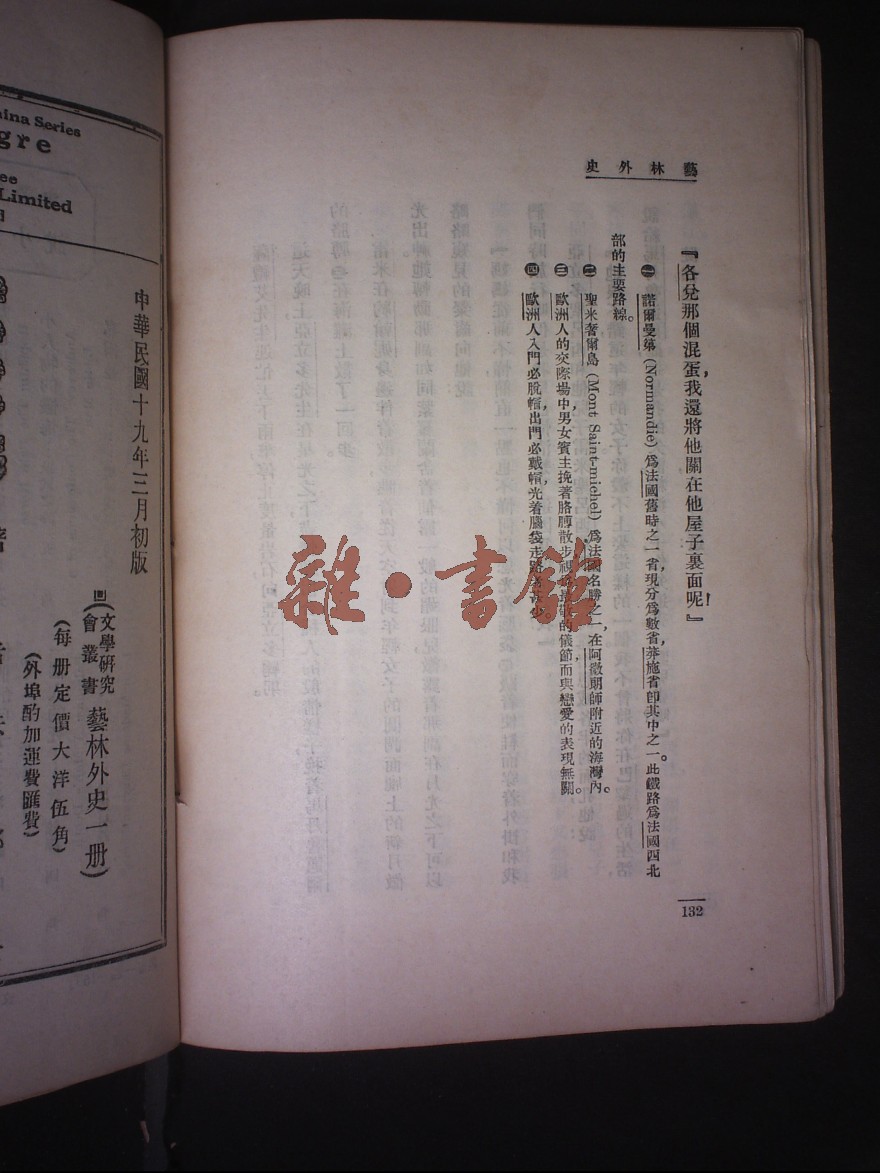 藝林外史
『各兌那個混蛋，我還將他關在他屋子裏面呢！』
㊀諾爾曼第(Normandie)爲法國舊時之一省現分爲數省，莽施省卽其中之一。此鐵路爲法國四北
部的主要路線。
㊁聖米奢爾島(Mont Saint-michel)爲法國名勝之一，在阿撒朗師附近的海灣內。
㊂歐洲人的交際場中，男女賓主挽著胳膊散步，視爲恭敬的儀節，而與戀愛的表現無關。
㊃歐洲人入門必脫帽，出門必戴帽，光着腦袋走路者甚少。
132
雜·書館
ina Series
gre
ee
Limited
中華民國十九年三月初版
文學研究
會叢書
藝林外史一册)
(每册定價大洋伍角)
(外埠酌加運費匯費)